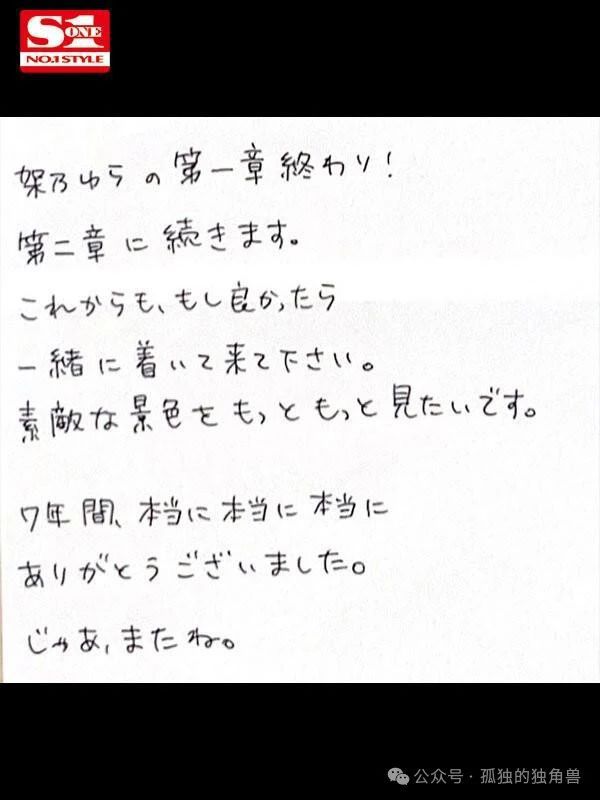 S1
ONE
NO.1 STYLE
架乃ゆらの第一章終わり!
第二章に続きます。
これからも、もし良かったら
一緒に着いて来て下さい。
素敵な景色をもっともっと見たいです。
7年間、本当に本当に本当に
ありがとうございました。
じゃあ、またね。
公众号·孤独的独角兽